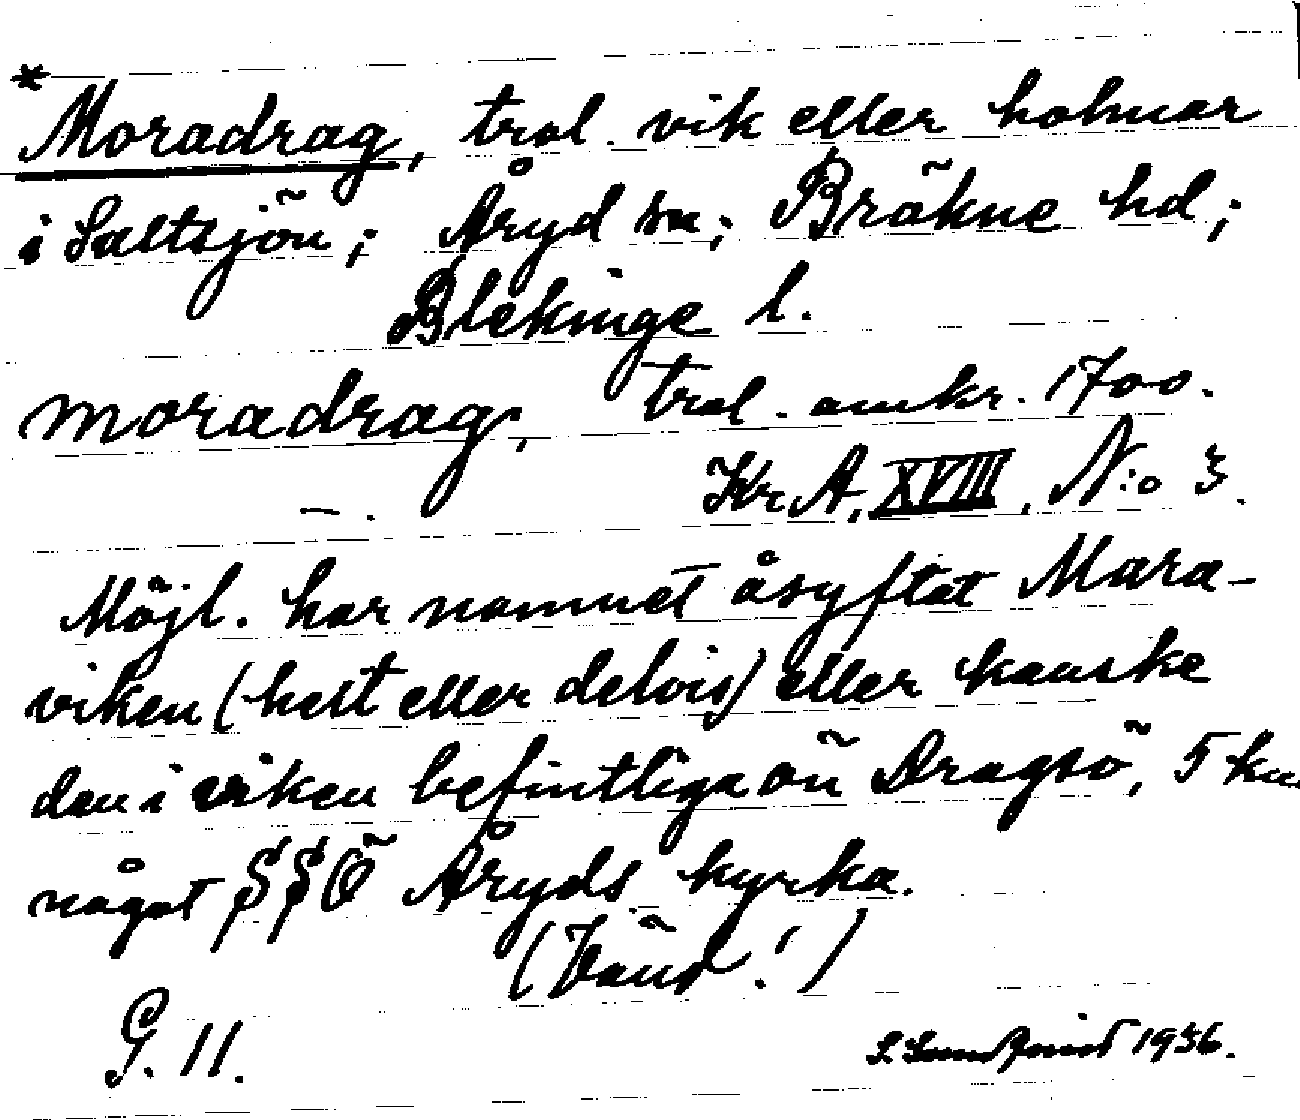 *Moradrag, trol. vik eller holmar
i Saltsjön; Åryd sn; Bräkne hd;
Blekinge l.
moradrag, trol. omkr. 1700.
Kr. A. XVIII, N:o 3.
— .
Möjl. har namnet åsyftat Mara-
viken (helt eller delvis) eller kanske
den i viken befintliga ön Dragsö, 5 km
något SSÖ Åryds kyrka.
(Vänd!)
G. 11. 1936.